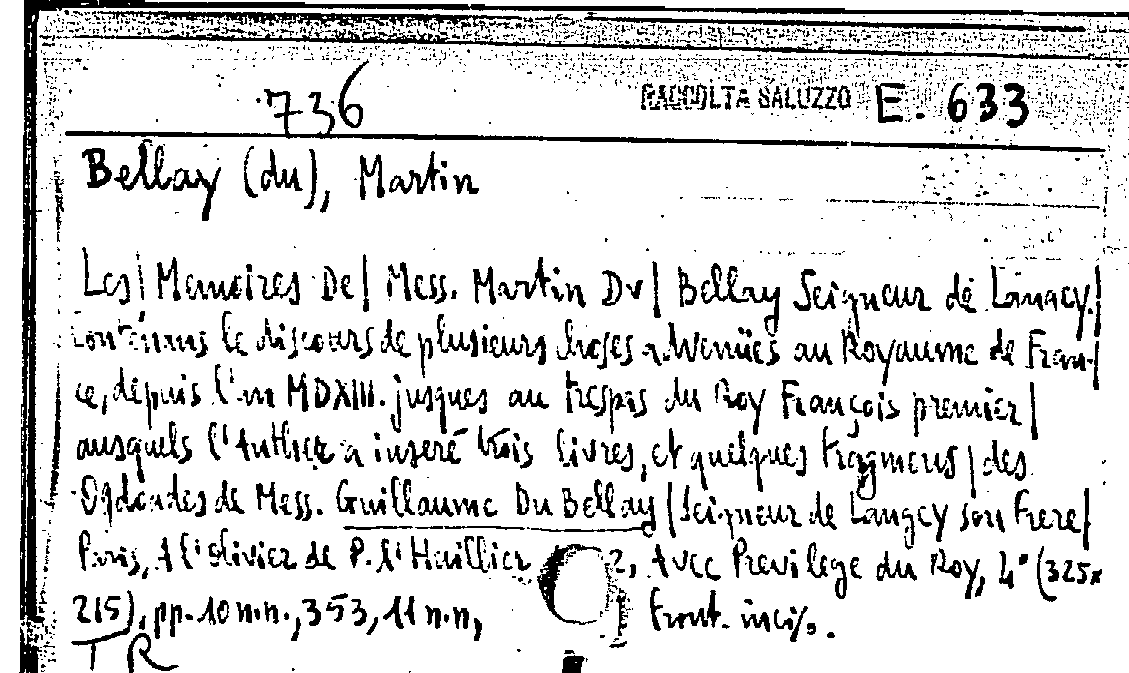 736 RACCOLTA SALUZZO E. 633
Bellay (du), Martin
Les | Memoires De | Mess. Martin Dv | Bellay Seigneur de Langey. |
Contenans le discours de plusieurs choses advenües au Royaume de Fran- |
ce, depuis l'an MDXIII. jusques au trespas du Roy François premier |
ausquels l'Autheur a inseré trois livres, et quelques fragmens | des
Ogdoades de Mess. Guillaume Du Bellay | Seigneur de Langey son Frere |
Paris, A l'olivier de P. l'Huillier 2, Avec Previlege du Roy, 4° (325x
215), pp. 10 n.n., 353, 11 n.n, Front. inciso.
T R